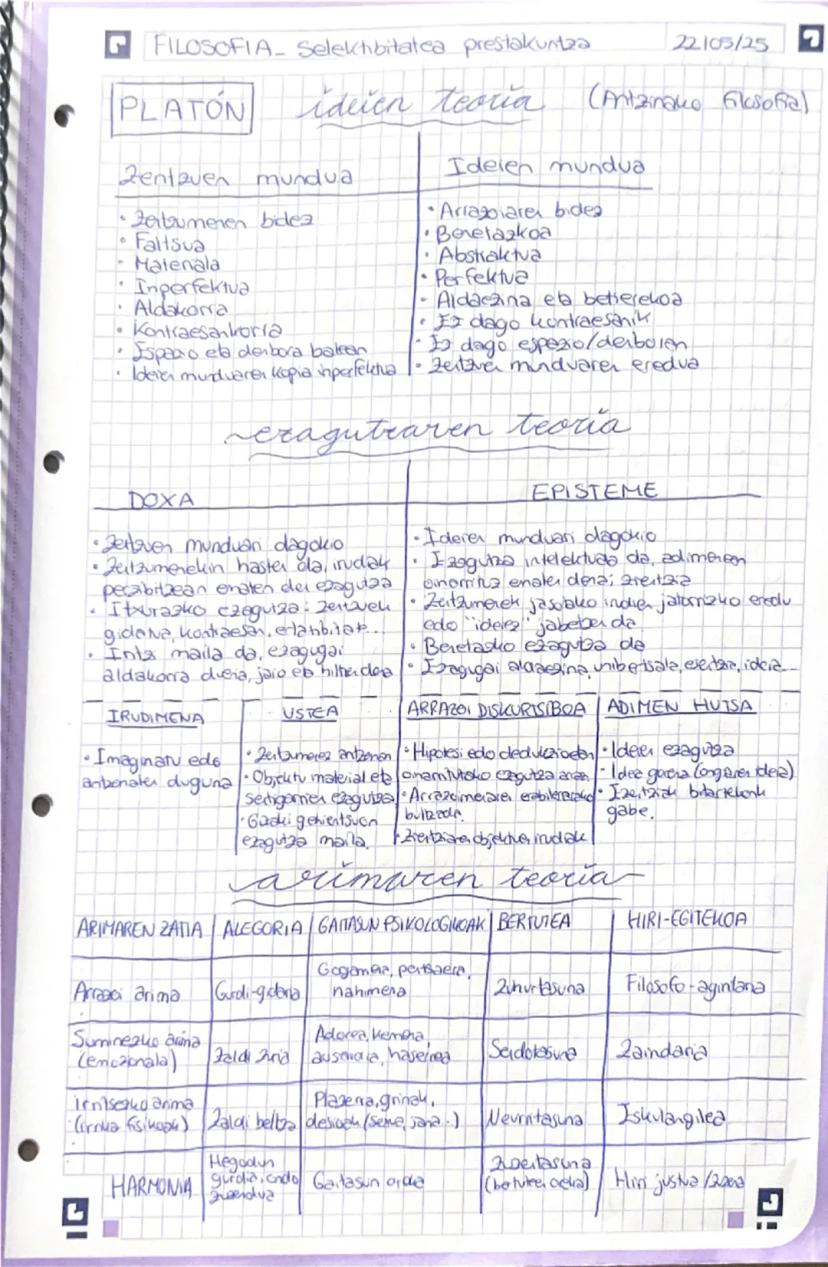 FILOSOFIA_ Selektibitatea prestakuntza 22/05/25
PLATÓN ideien teoria (Antzinako filosofia)
Zentzuen mundua
· Zentzumenen bidez
· Faltsua
· Materiala
· Inperfektua
· Aldakorra
· Kontraesankorra
· Espazio eta denbora batean
· Ideien munduaren kopia inperfektua
Ideien mundua
· Arrazoiaren bidez
· Benetazkoa
· Abstraktua
· Perfektua
· Aldaezina eta betierekoa
· Ez dago kontraesanik
· Ez dago espazio/denboran
· Zentzuen munduaren eredua
ezagutzaren teoria
DOXA
· Zentzuen munduari dagokio
· Zentzumenekin hasten da, irudiak
pertzibitzean ematen den ezagutza
· Itxurazko ezagutza: zentzuek
gidatua, kontraesan, erlatibitate...
· maila da, ezagugai
aldakorra duena, jaio eta hiltzen dena
EPISTEME
· Ideien munduari dagokio
· Ezagutza intelektuala da, adimenean
oinarrituz ematen dena; zientzia
· Zentzumenek jasotako irudien jatorrizko eredu
edo "ideiez" jabetzen da
· Benetasko ezagutza da
· Ezagugai aldaezina, unibertsala, esentzia, ideia...
IRUDIMENA
· Imaginatu edo
antzematen duguna
USTEA
· Zentzumenez antzeman
· Objektu material eta
sentigarrien ezagutza
· Gizaki gehientsuen
ezagutza maila.
ARRAZOI DISKURTSIBOA
· Hipotesi edo dedukzioetan
oinarritutako ezagutza
· Arrazoimenaren erabilerarako
bultzada.
· Zientziaren objektuen irudiak
ADIMEN HUTSA
· Ideien ezagutza
· Idea gorena (ongiaren ideia)
· Ezentziak bitartekorik
gabe.
arimaren teoria
ARIMAREN ZATIA ALEGORIA GAITASUN PSIKOLOGIKOAK BERTUTEA HIRI-EGITEKOA
Arrazoi arima Gurdi-gidaria Gogamena, pentsaera, nahimena Zuhurtasuna Filosofo-agintaria
Suminezko arima (emozionala) Zaldi zuria Adorea, kemena, ausardia, haserrea Sendotasuna Zaindaria
irritsezko arima (irrika fisikoak) Zaldi beltza Plazera, grinak, desioak (sexua, jana..) Neurritasuna Eskulangilea
HARMONIA Hegodun gurdia, ondo zuzendua Gaitasun oreka Zuzentasuna (bertuteen oreka) Hiri justua/zuzena